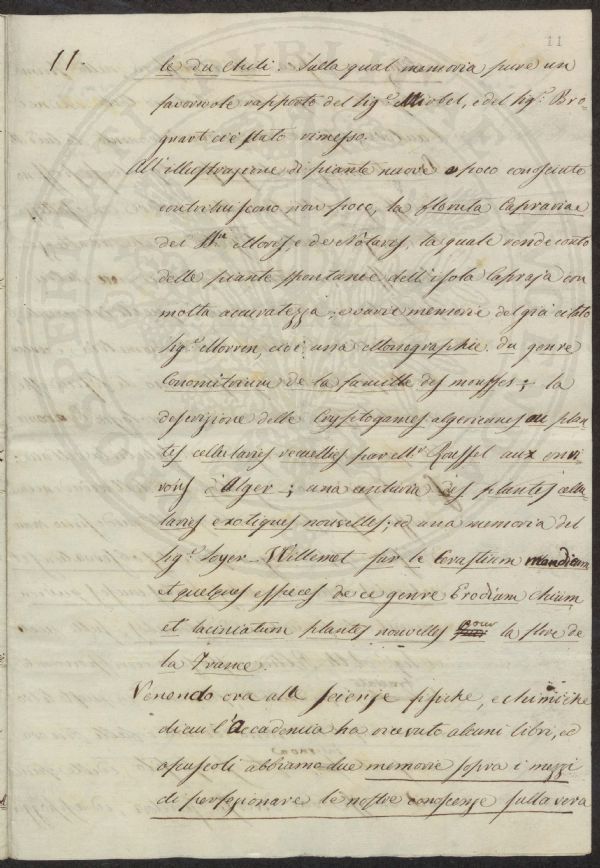 11
11.
le du Chili. Sulla qual memoria pure un
favorevole rapporto del Sig.e Mirbel, e del Sig.e Bro-
gnart ci è stato rimesso.
All'illustrazione di piante nuove o poco conosciute
contribuiscono non poco, la florula Caprariae
dei S.ri Moris, e de Notaris, la quale rende conto
delle piante spontanee dell'isola Capraja con
molta accuratezza; e varie memorie del già citato
Sig.e Morren, cioè, una Monographie du genre
Conomitrium de la famille des mousses; la
descrizione delle Cryptogames algeriennes ou plan-
tes cellulaires recueillies par Mr. Roussel aux envi-
rons d'Alger; una centuria des plantes cellu-
laires exotiques nouvelles; ed una memoria del
Sig.e Soyer-Willemet sur le Cerastium
et quelques especes de ce genre Erodium chium
et laciniatum plantes nouvelles pour la flore de
la France.
Venendo ora alla scienze fisiche, e chimiche
di cui l'Accademia ha ricevuto alcuni libri, ed
opuscoli abbiamo due memorie sopra i mezzi
di perfezionare le nostre conoscenze sulla vera